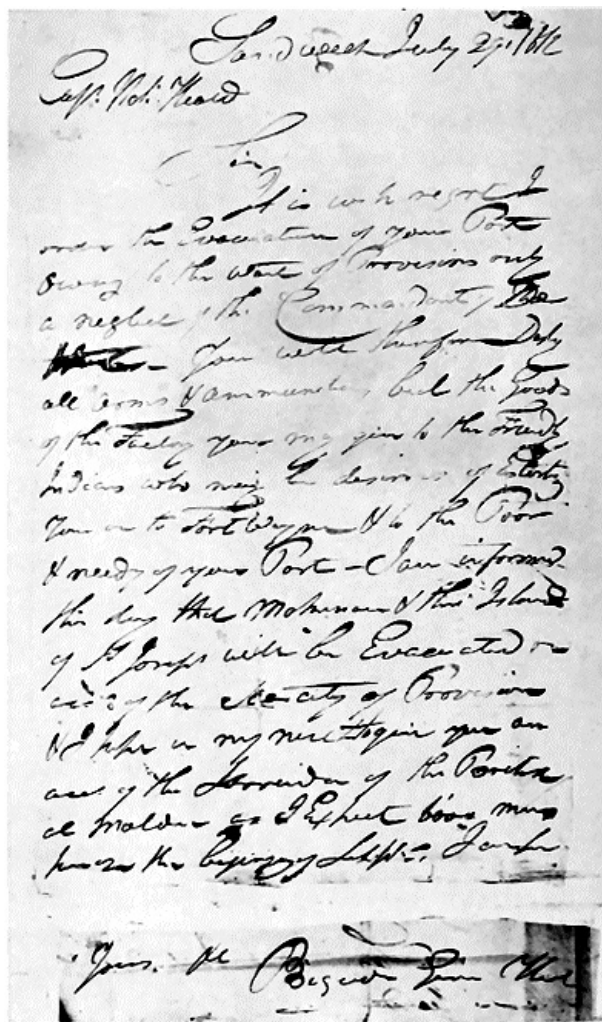 Sandwich July 29. 1812
Capt. Nat. Heald
Sir
It is with regret I
order the Evacuation of your Post
Owing to the want of Provisions only
a neglect of the Commandant of
You will therefore Destroy
all arms & ammunition but the Goods
of the Factory you may give to the Friendly
Indians who may be desirous of Escorting
You on to Fort Wayne & to the Poor
& needy of your Post – I am informed
this day that Makinac & the Island
of St Joseph will be Evacuated on
acc of the scarcity of Provision
& I hope in my next to give you an
acc. of the Surrender of the British
at Malden as I Expect 600 men
here by the begining of Sept.
Yours &c
Brigad Genl Hull